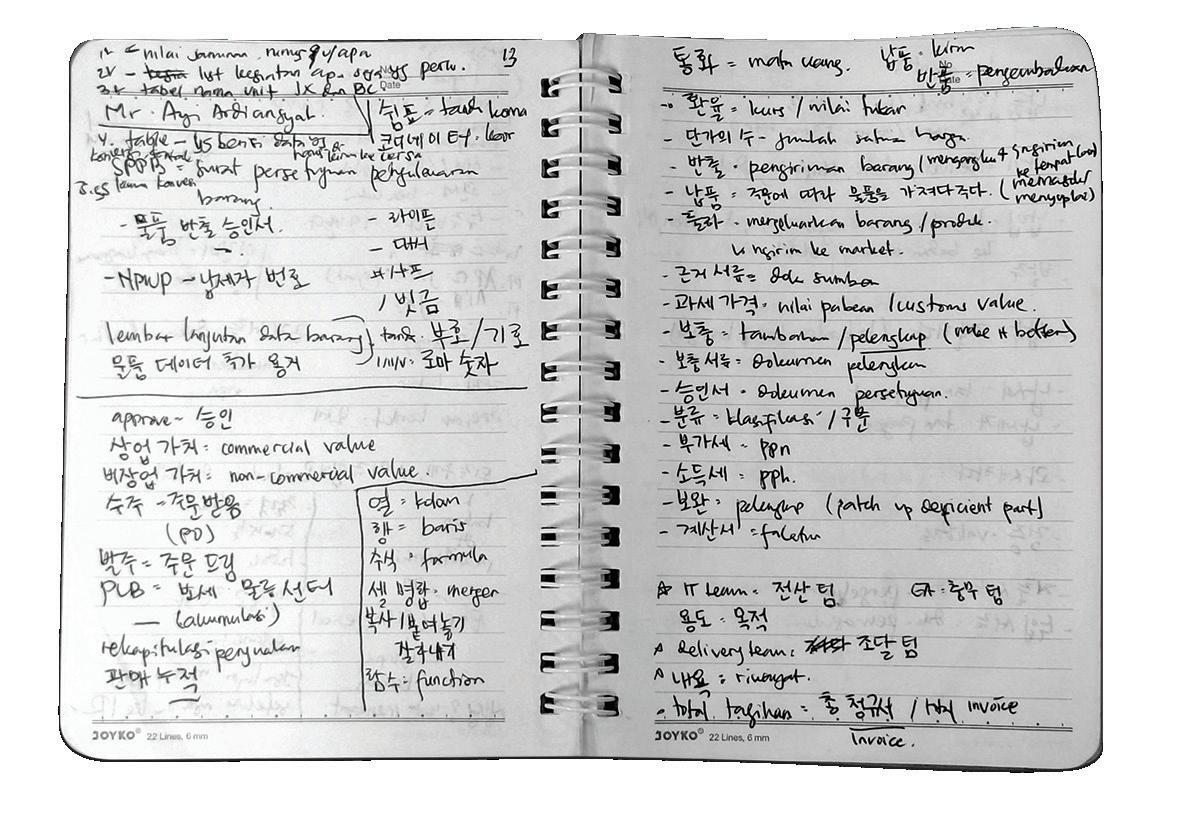 1. nilai
2. - list kegiatan apa saja yg perlu.
13
3. tabel nama unit IX dan BC
Mr. Ayi Ardiansyah
쉼표 = tanda koma
4. table - yg berisi data yg
코디네이터 · koor
SPPB = surat persetujuan pengeluaran
barang
- 물품 반출 승인서.
- 라이픈
- 대서
- NPWP - 납제자 번호
/ 빗금
lembar lanjutan data barang
tanda · 부호 / 기호
물품 데이터 추가 용지
I/II/IV: 로마 숫자
approve - 승인
상업 가치 : commercial value
비상업 가치 : non-commercial value.
수주 - 주문받음
(PO)
발주 = 주문 드림
PLB = 보세 물류 센터
— (akumulasi)
rekapitulasi penjualan
판매 누적
열 = kolom
행 = baris
수식 · formula
셀 병합 · merger
복사 / 붙여놓기
잘라내기
함수 : function
JOYKO® 22 Lines, 6 mm
통화 = mata uang.
납품 · kirim
No
반품 = pengembalian
Date
- 환율 = kurs / nilai tukar
- 단가의 수 - jumlah satuan harga.
- 반출 · pengiriman barang / mengangkut
- 납품 = 주문에 따라 물품을 가져다주다. (memasok / menyuplai)
- 출하 - mengeluarkan barang / produk.
ngirim ke market.
- 근거 서류 = dok sumber
- 과세 가격 · nilai pabean / customs value.
- 보충 = tambahan / pelengkap (make it better)
- 보충 서류 = dokumen pelengkap
- 승인서 · dokumen persetujuan.
- 분류 = klasifikasi / 구분
- 부가세 = ppn
- 소득세 = pph.
- 보완 = pelengkap (patch up deficient part)
- 계산서 = faktur
☆ IT team = 전산 팀 GA : 총무 팀
용도 = 목적
Delivery team : 조달 팀
내용 : riwayat.
total tagihan = 총 청구서 / total invoice
Invoice.
JOYKO® 22 Lines, 6 mm